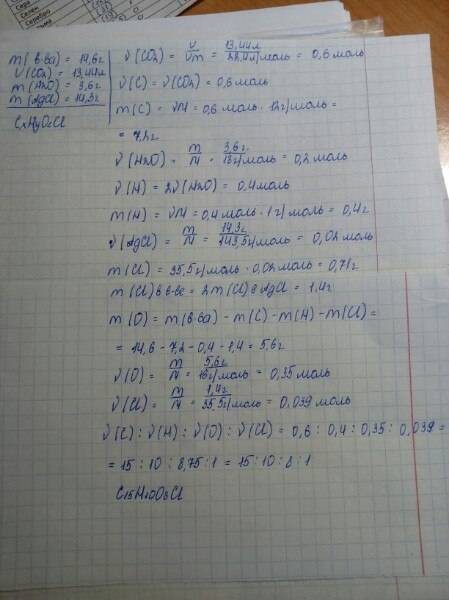 Серебро
m(в-ва) = 14,6г
V(CO₂) = 13,44л
m(H₂O) = 3,6г
m(AgCl) = 14,3г
CxHyOzCl
ν(CO₂) = V/Vm = 13,44л/22,4л/моль = 0,6 моль
ν(C) = ν(CO₂) = 0,6моль
m(C) = νM = 0,6 моль · 12г/моль =
= 7,2г
ν(H₂O) = m/M = 3,6г/18г/моль = 0,2моль
ν(H) = 2ν(H₂O) = 0,4моль
m(H) = νM = 0,4 моль · 1г/моль = 0,4г
ν(AgCl) = m/M = 14,3г/143,5г/моль = 0,02моль
m(Cl) = 35,5г/моль · 0,02моль = 0,71г
m(Cl) в в-ве = 2m(Cl) в AgCl = 1,4г
m(O) = m(в-ва) - m(C) - m(H) - m(Cl) =
= 14,6 - 7,2 - 0,4 - 1,4 = 5,6г
ν(O) = m/M = 5,6г/16г/моль = 0,35 моль
ν(Cl) = m/M = 1,4г/35,5г/моль = 0,039моль
ν(C) : ν(H) : ν(O) : ν(Cl) = 0,6 : 0,4 : 0,35 : 0,039 =
= 15 : 10 : 8,75 : 1 = 15 : 10 : 8 : 1
C₁₅H₁₀O₈Cl